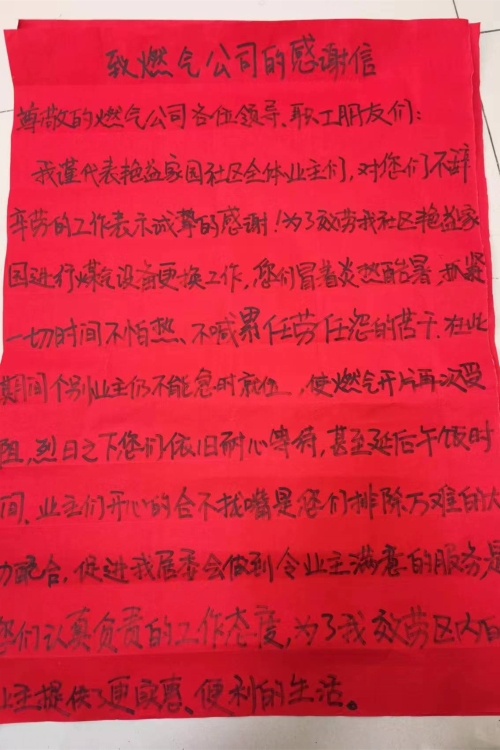 致燃气公司的感谢信
尊敬的燃气公司各位领导、职工朋友们:
我谨代表艳益家园社区全体业主们,对您们不辞
辛劳的工作表示诚挚的感谢!为了效劳我社区艳益家
园进行煤气设备更换工作,您们冒着炎热酷暑,抓紧
一切时间不怕热、不喊累任劳任怨的苦干。在此
期间个别业主仍不能急时就位,使燃气开片再次受
阻,烈日之下您们依旧耐心等待,甚至延后午饭时
间、业主们开心的合不拢嘴是您们排除万难的大
力配合,促进我居委会做到令业主满意的服务是
您们认真负责的工作态度,为了我效劳区内的
业主提供了更实惠、便利的生活。